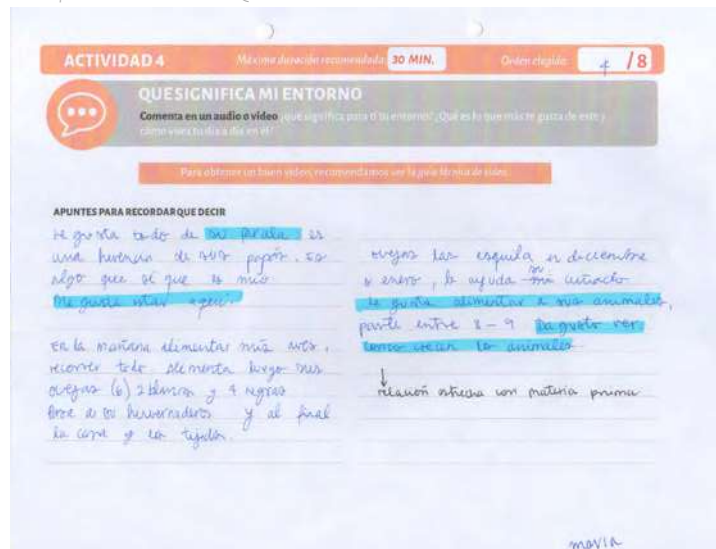 ACTIVIDAD 4
Máxima duración recomendada: 30 MIN.
Orden elegido: 4 /8
QUE SIGNIFICA MI ENTORNO
Comenta en un audio o video ¿qué significa para ti tu entorno? ¿Qué es lo que más te gusta de este y
cómo vives tu día a día en él?
Para obtener un buen video, recomendamos ver la guía técnica de video.
APUNTES PARA RECORDAR QUE DECIR
le gusta todo de su
una herencia de sus papás. es
algo que sé que es mio
Me gusta estar aquí.
en la mañana alimentar mis aves,
recorrer todo alimenta luego sus
ovejas (6) 2 blancas y 4 negras
a los hivernaderos y al final
la casa y los tejidos.
ovejas las esquila en diciembre
o enero, le ayuda mi su cuñado
le gusta alimentar a sus animales,
parte entre 8 - 9 Da gusto ver
como crecen los animales
relación estrecha con materia prima
maria